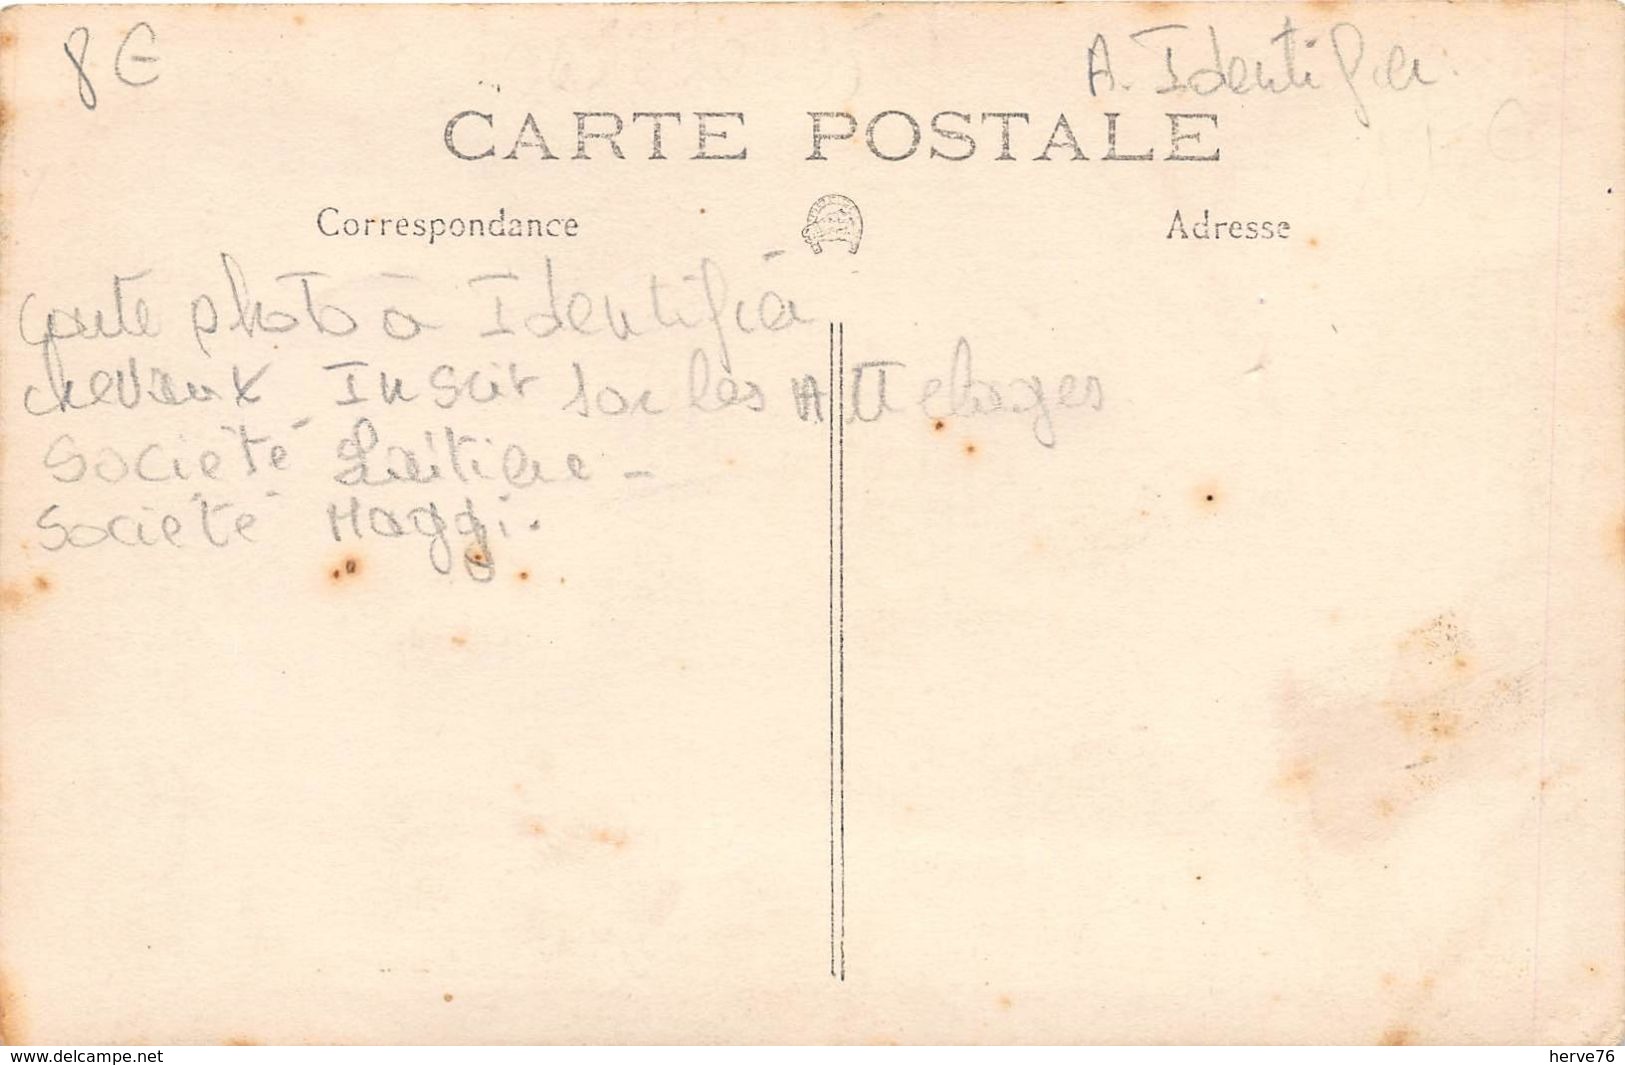 8 €
A. Identifier
CARTE POSTALE
Correspondance
Adresse
Carte photo à Identifier
chevaux Inscrit sur les Attelages
Société Laitière -
Société Maggi.
www.delcampe.net
herve76